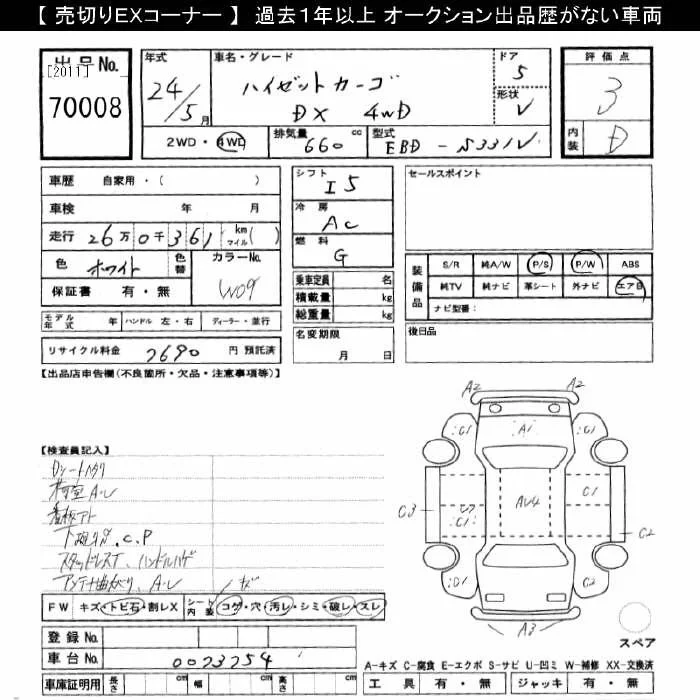 【 売切りEXコーナー 】 過去1年以上 オークション出品歴がない車両
出品No.
[2011]
70008
年式
24/5月
車名・グレード
ハイゼットカーゴ
DX 4WD
ドア
5
形状
V
評価点
3
内装
D
2WD・4WD
排気量
660 cc
型式
EBD-S331V
車歴 自家用・( )
車検 年 月
走行 26万0千361 km マイル( )
色 ホワイト 色替 カラーNo. W09
保証書 有・無
モデル年式 年 ハンドル 左・右 ディーラー・並行
リサイクル料金 7690 円 預託済
シフト
I5
冷房
AC
燃料
G
乗車定員 名
積載量 kg
総重量 kg
名変期限
月 日
セールスポイント
装備品
S/R 純A/W P/S P/W ABS
純TV 純ナビ 革シート 外ナビ エアB
ナビ型番:
後日品
【出品店申告欄(不良箇所・欠品・注意事項等)】
【検査員記入】
Dシートヘタリ
荷室A.U
看板アト
下廻りS.C.P
スタッドレスT、ハンドルハゲ
アンテナ曲がり、A.U
FW キズ・トビ石・割レX シート内装 コゲ・穴・汚レ・シミ・破レ・スレ
キズ
A2 A2
C1 A1 C1
C3 C1 AU4 C1 C2
C1 C1
A3
スペア
登録No.
車台No. 0073254
車庫証明用 長さ cm 幅 cm 高さ cm
A-キズ C-腐食 E-エクボ S-サビ U-凹ミ W-補修 XX-交換済
工具 有・無 ジャッキ 有・無